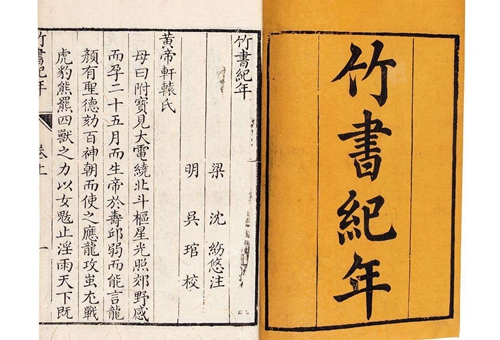 竹書紀年
竹書紀年
梁 沈 注
明 吳 琯 校
黃帝軒轅氏
母曰附寶見大電繞北斗樞星光照郊野感
而孕二十五月而生帝於壽邱弱而能言龍
顏有聖德劾百神朝而使之應龍攻蚩尤戰
虎豹熊羆四獸之力以女魃止淫雨天下既
竹書紀年 卷上 一